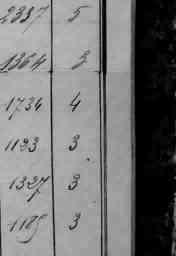 2337 5
1364 3
1734 4
1133 3
1327 3
1185 3